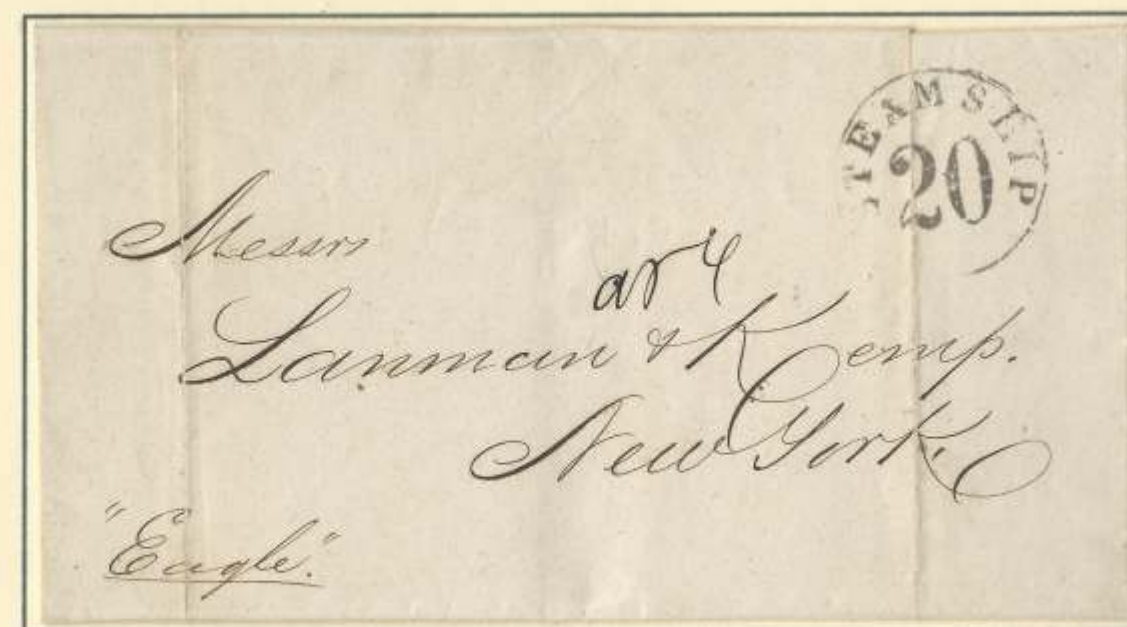 STEAMSHIP
20
Messrs
Lanman & Kemp.
New York.
"Eagle".